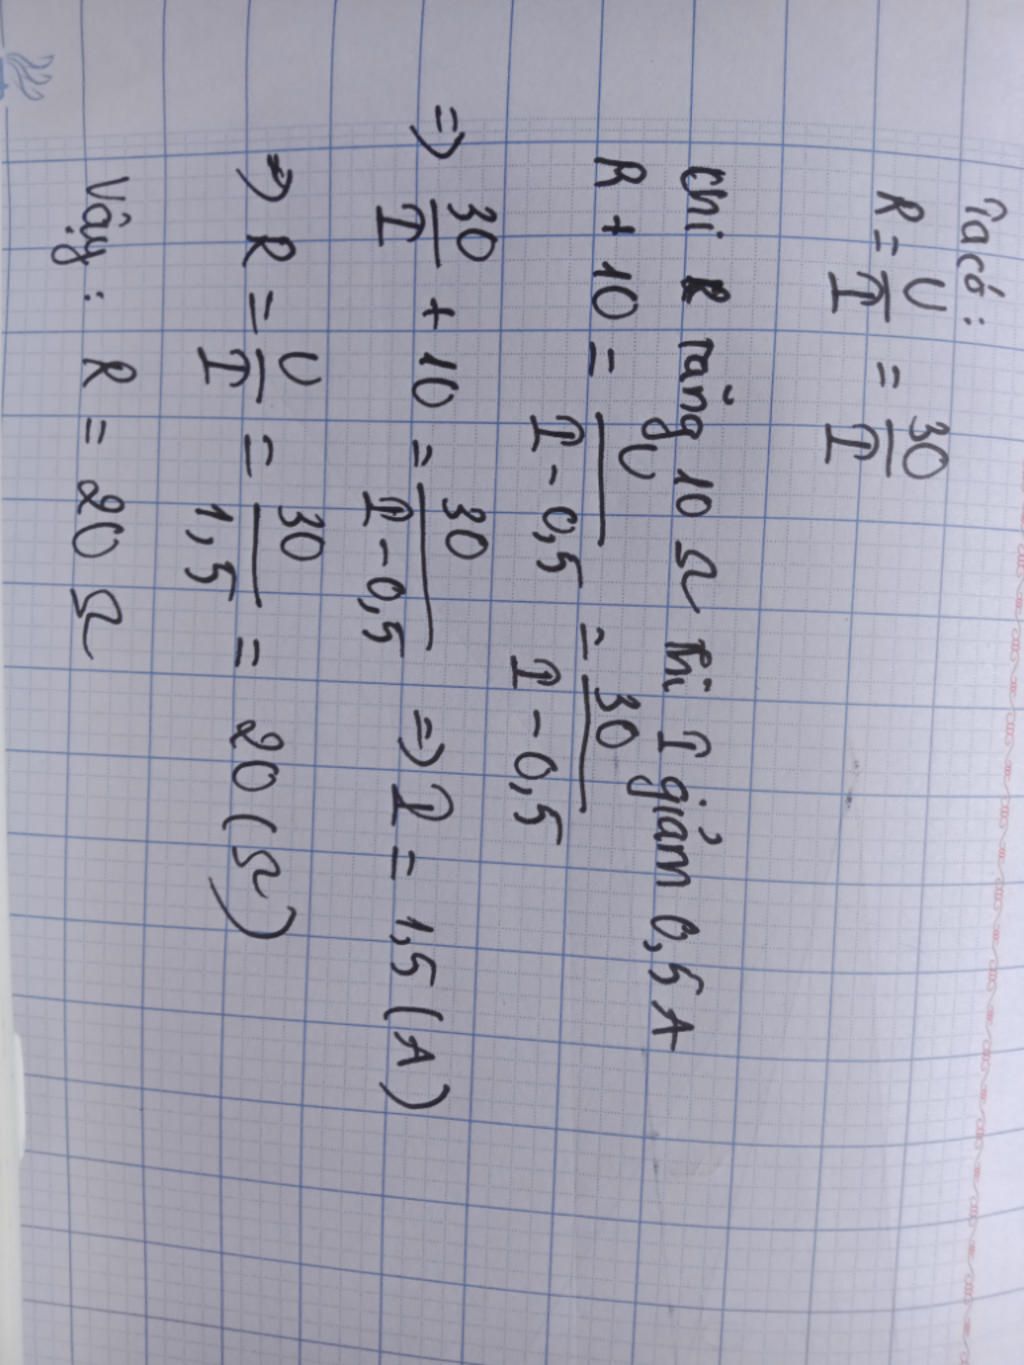 Ta có:
R = U/I = 30/I
Khi R tăng 10 Ω thì I giảm 0,5A
R + 10 = U/(I - 0,5) = 30/(I - 0,5)
=> 30/I + 10 = 30/(I - 0,5) => I = 1,5 (A)
=> R = U/I = 30/1,5 = 20 (Ω)
Vậy: R = 20 Ω